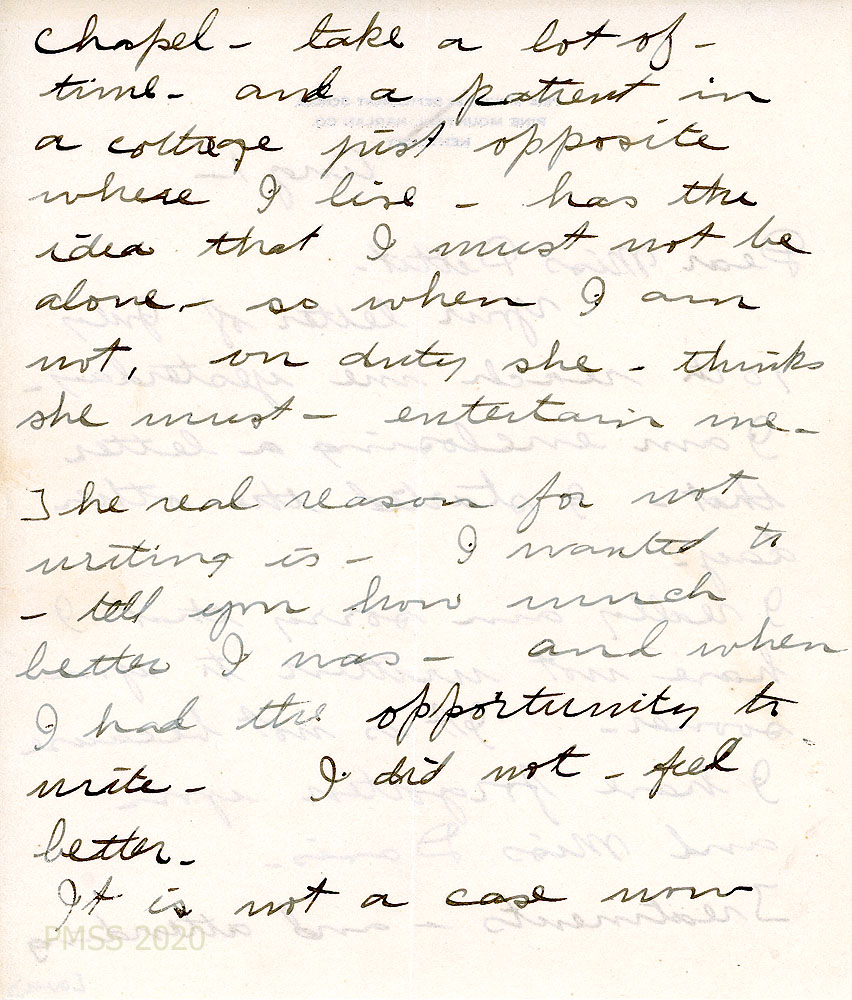 Chapel - take a lot of -
time - and a patient in
a cottage just opposite
where I live - has the
idea that I must not be
alone, - so when I am
not, on duty she - thinks
she must - entertain me -
The real reason for not
writing is - I wanted to
- tell you how much
better I was - and when
I had the opportunity to
write - I did not - feel
better -
It is not a case now
PMSS 2020